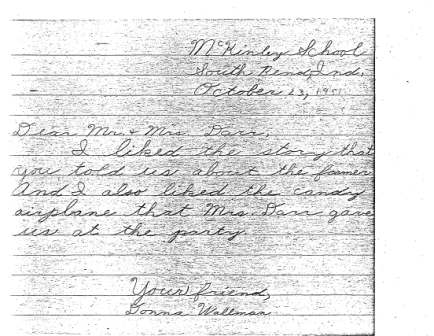 McKinley School
South Bend, Ind.
October 23, 1951
Dear Mr. + Mrs. Darr,
I liked the story that
you told us about the farmer
And I also liked the candy
airplane that Mrs. Darr gave
us at the party.
Your friend,
Donna Wallman